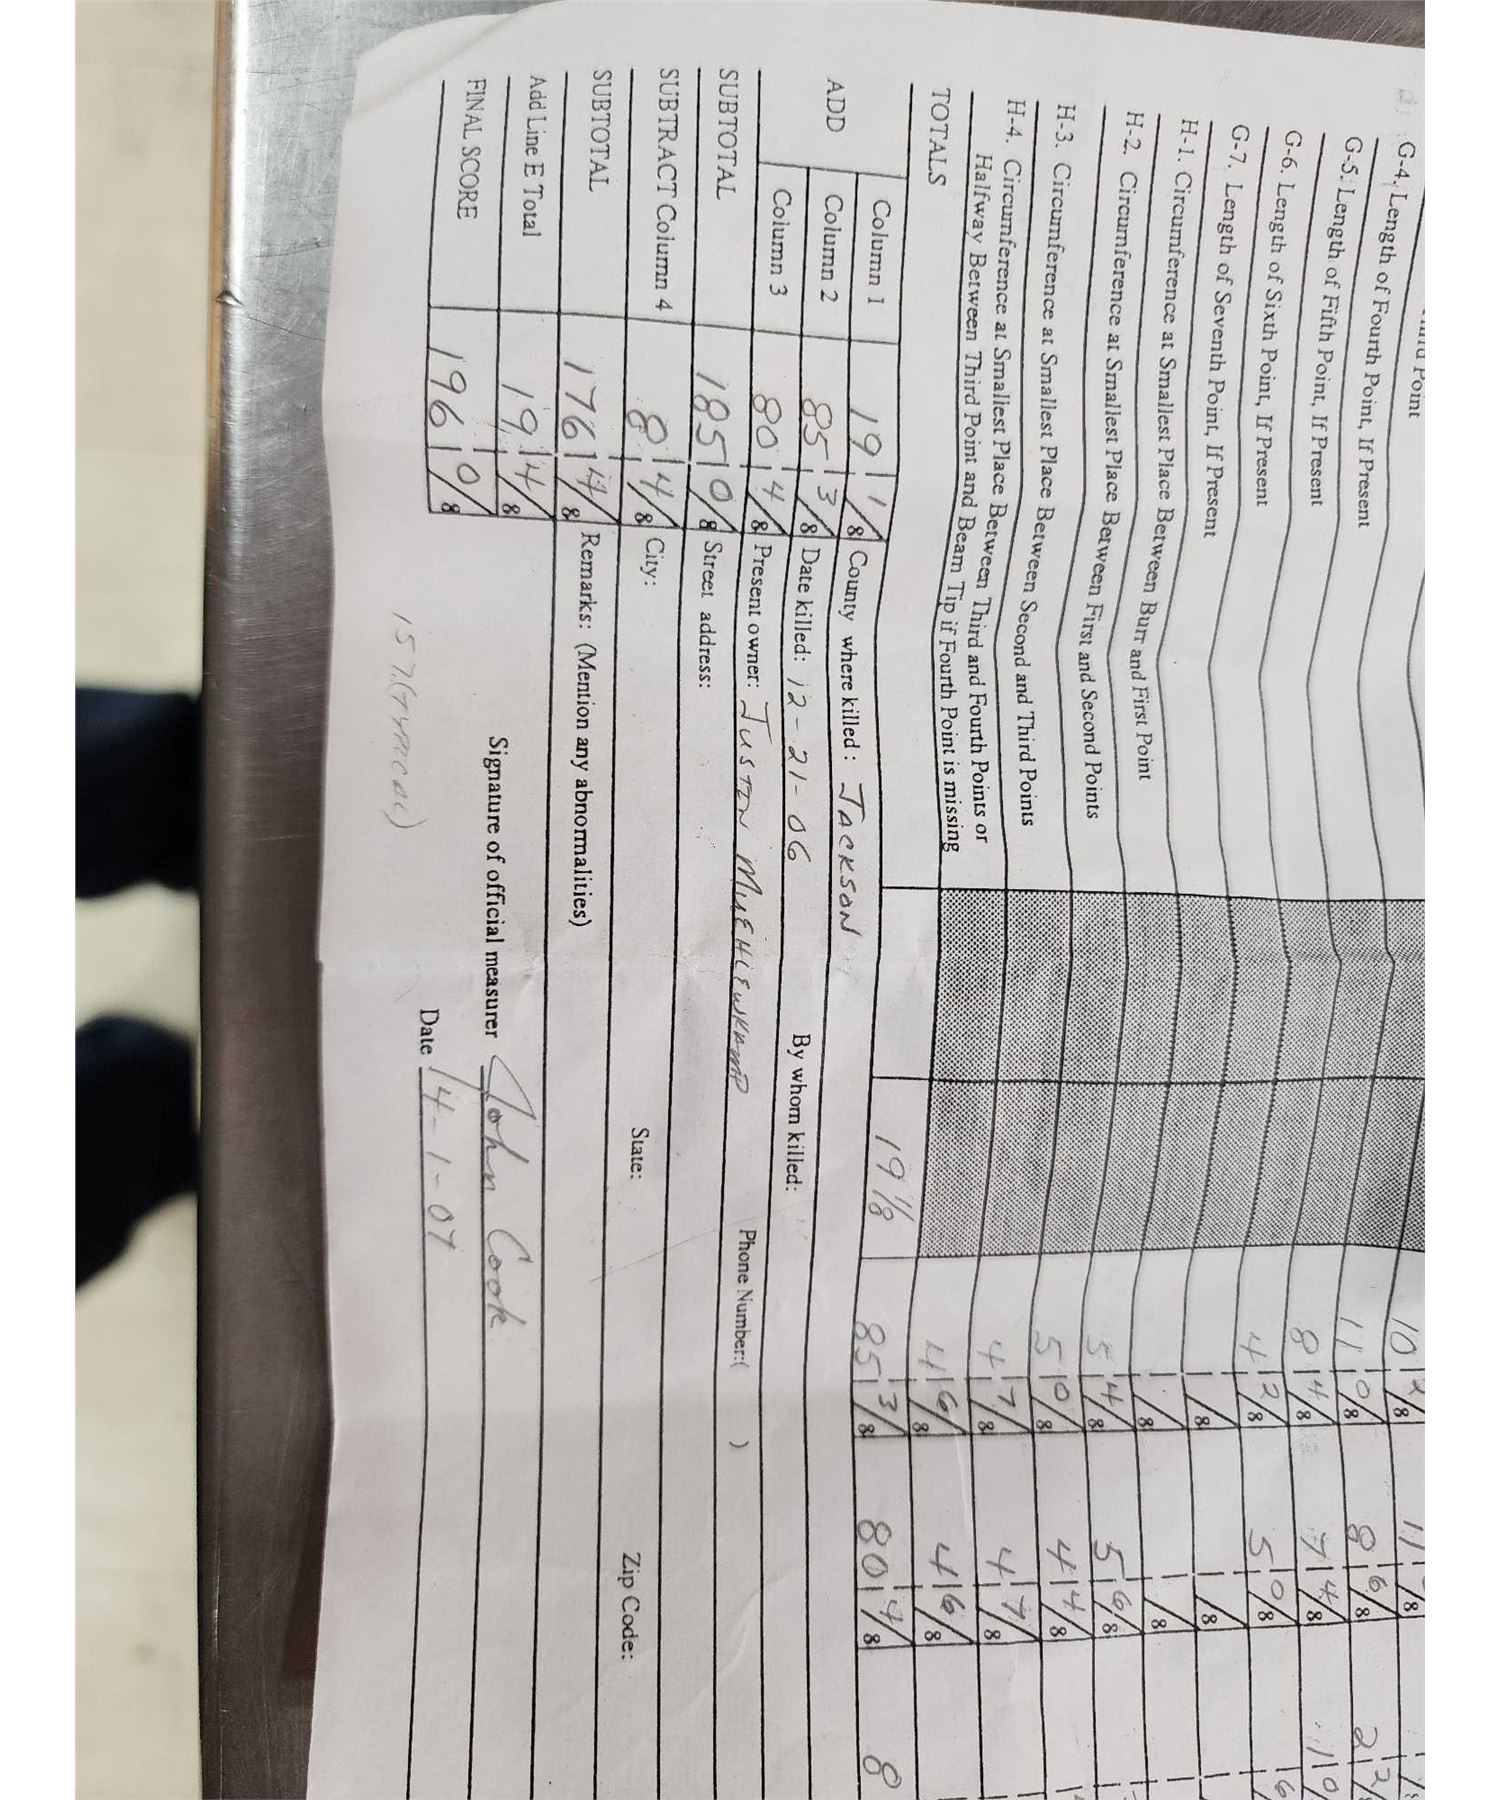 Point
G-4. Length of Fourth Point, If Present 10 2/8 11 /8
G-5. Length of Fifth Point, If Present 11 0/8 8 6/8 2 2/8
G-6. Length of Sixth Point, If Present 8 4/8 7 4/8 1 0
G-7. Length of Seventh Point, If Present 4 2/8 5 0/8 6
H-1. Circumference at Smallest Place Between Burr and First Point /8 /8
H-2. Circumference at Smallest Place Between First and Second Points /8 /8
H-3. Circumference at Smallest Place Between Second and Third Points 5 4/8 5 6/8
H-4. Circumference at Smallest Place Between Third and Fourth Points or 5 0/8 4 4/8
Halfway Between Third Point and Beam Tip if Fourth Point is missing 4 7/8 4 7/8
4 6/8 4 6/8
TOTALS 19 1/8 85 3/8 80 4/8 8
ADD Column 1 19 1/8 County where killed: JACKSON
Column 2 85 3/8 Date killed: 12-21-06 By whom killed:
Column 3 80 4/8 Present owner: JUSTIN Phone Number:( )
SUBTOTAL 185 0/8 Street address:
SUBTRACT Column 4 8 4/8 City: State: Zip Code:
SUBTOTAL 176 4/8 Remarks: (Mention any abnormalities)
Add Line E Total 19 4/8
FINAL SCORE 196 0/8 Signature of official measurer John Cook
Date 4-1-07
157